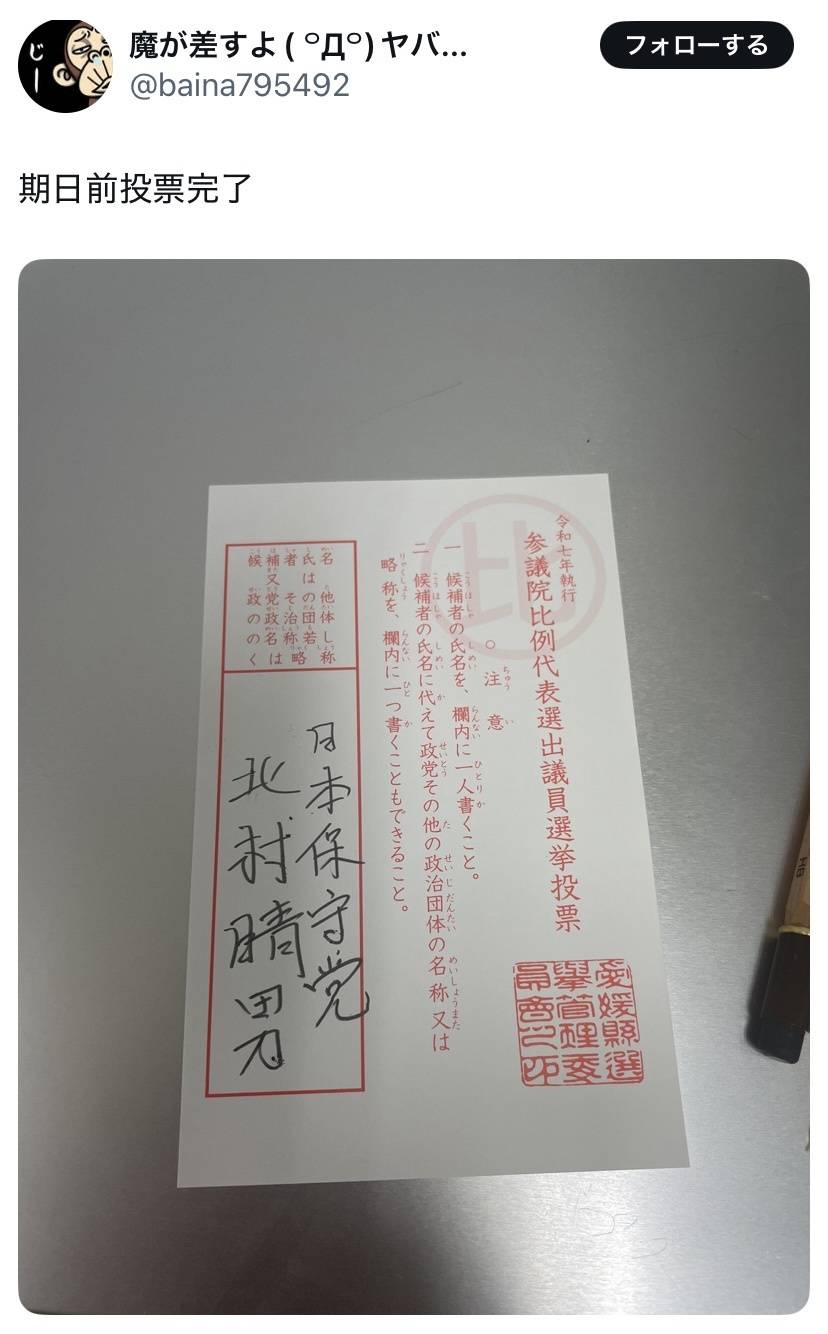 じー
魔が差すよ ( ºДº) ヤバ…
@baina795492
フォローする
期日前投票完了
令和七年執行
参議院比例代表選出議員選挙投票
比
○注意
一 候補者の氏名を、欄内に一人書くこと。
二 候補者の氏名に代えて政党その他の政治団体の名称又は
略称を、欄内に一つ書くこともできること。
愛媛縣選
擧管理委
員會之印
候補者氏名
又は
政党その他
の政治団体
の名称若し
くは略称
日本保守党
北村晴男
HB